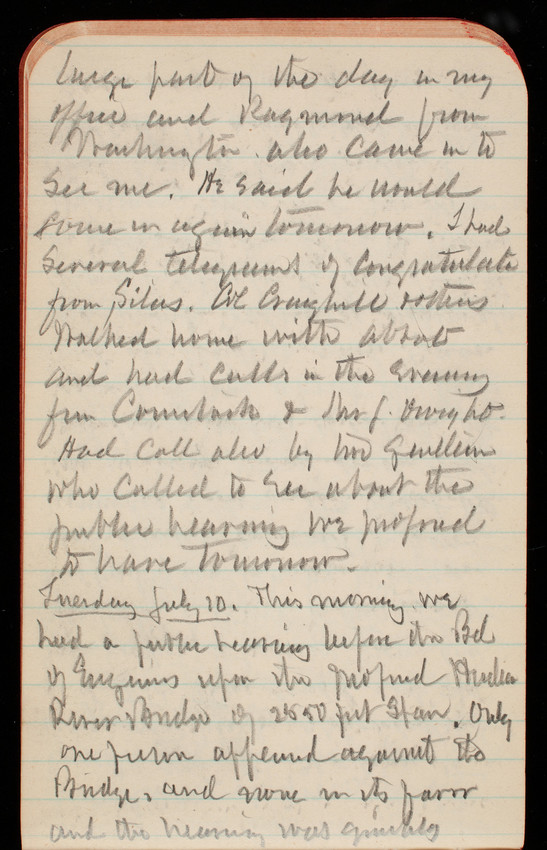 large part of the day in my
office and Raymond from
Washington also came in to
see me. He said he would
come in again tomorrow. I had
several telegrams of congratulate
from Silas. Col Craighill & others
Walked home with Abbot
and had calls in the evening
from Comstock & Mr J. Dwight.
Had call also by two gentlem
who called to see about the
public hearing we proposed
to have tomorrow.
Tuesday July 10. This morning we
had a public hearing before the Bd
of Engineers upon the proposed Hudson
River Bridge of 2850 feet span. Only
one person appeared against the
Bridge, and none in its favor
and the hearing was quickly